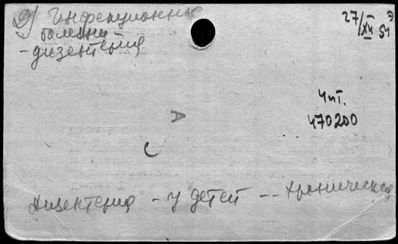 9) Инфекционные
болезни -
- дизентерия
27/XII 51 г
Чит.
470200
А
Дизентерия - у детей -- хроническая